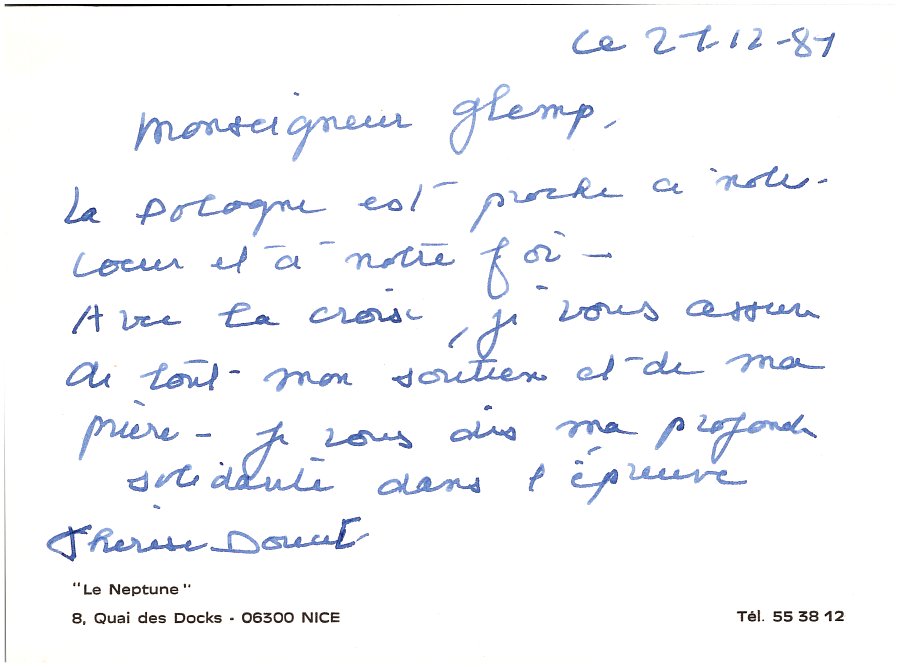 Le 21-12-81
Monseigneur Glemp,
La Pologne est proche à notre
coeur et à notre foi -
Avec "La Croix", je vous assure
de tout mon soutien et de ma
prière - je vous dis ma profonde
solidarité dans l'épreuve
Thérèse
"Le Neptune"
8, Quai des Docks - 06300 NICE
Tél. 55 38 12